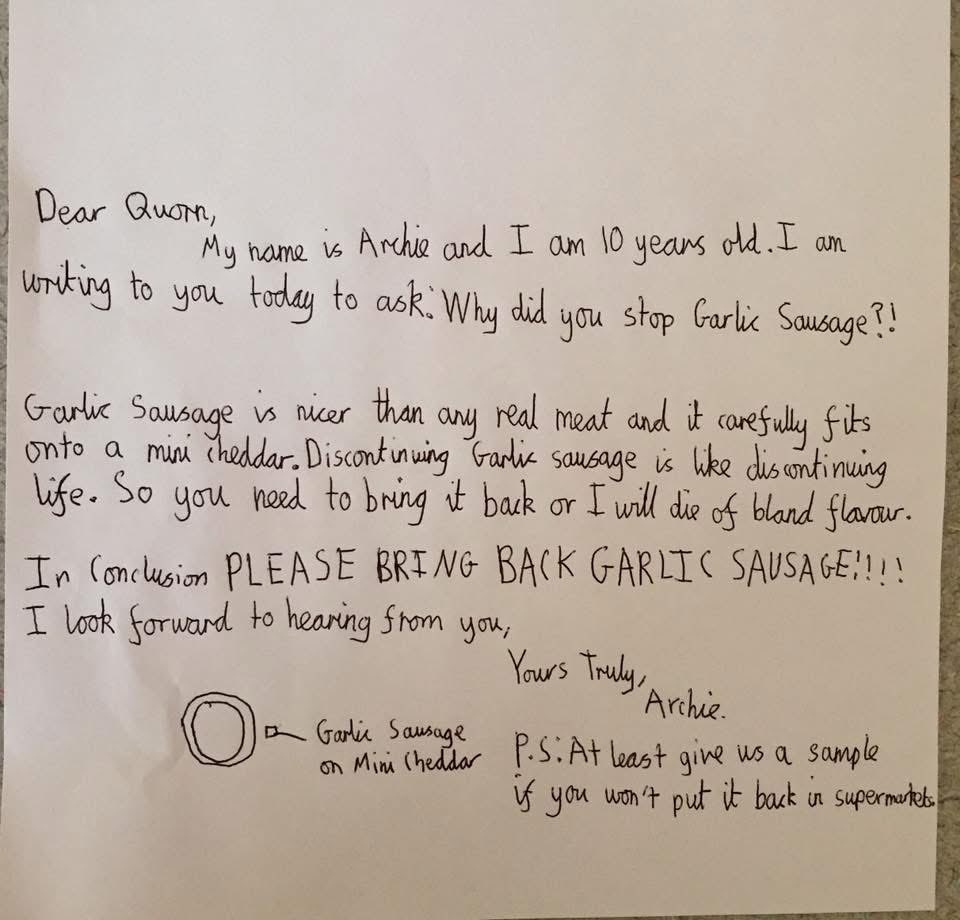 Dear Quorn,
My name is Archie and I am 10 years old. I am
writing to you today to ask: Why did you stop Garlic Sausage?!
Garlic Sausage is nicer than any real meat and it carefully fits
onto a mini cheddar. Discontinuing Garlic sausage is like discontinuing
life. So you need to bring it back or I will die of bland flavour.
In Conclusion PLEASE BRING BACK GARLIC SAUSAGE!!!!
I look forward to hearing from you,
Yours Truly,
Archie.
Garlic Sausage
on Mini Cheddar
P.S: At least give us a sample
if you won't put it back in supermarkets.